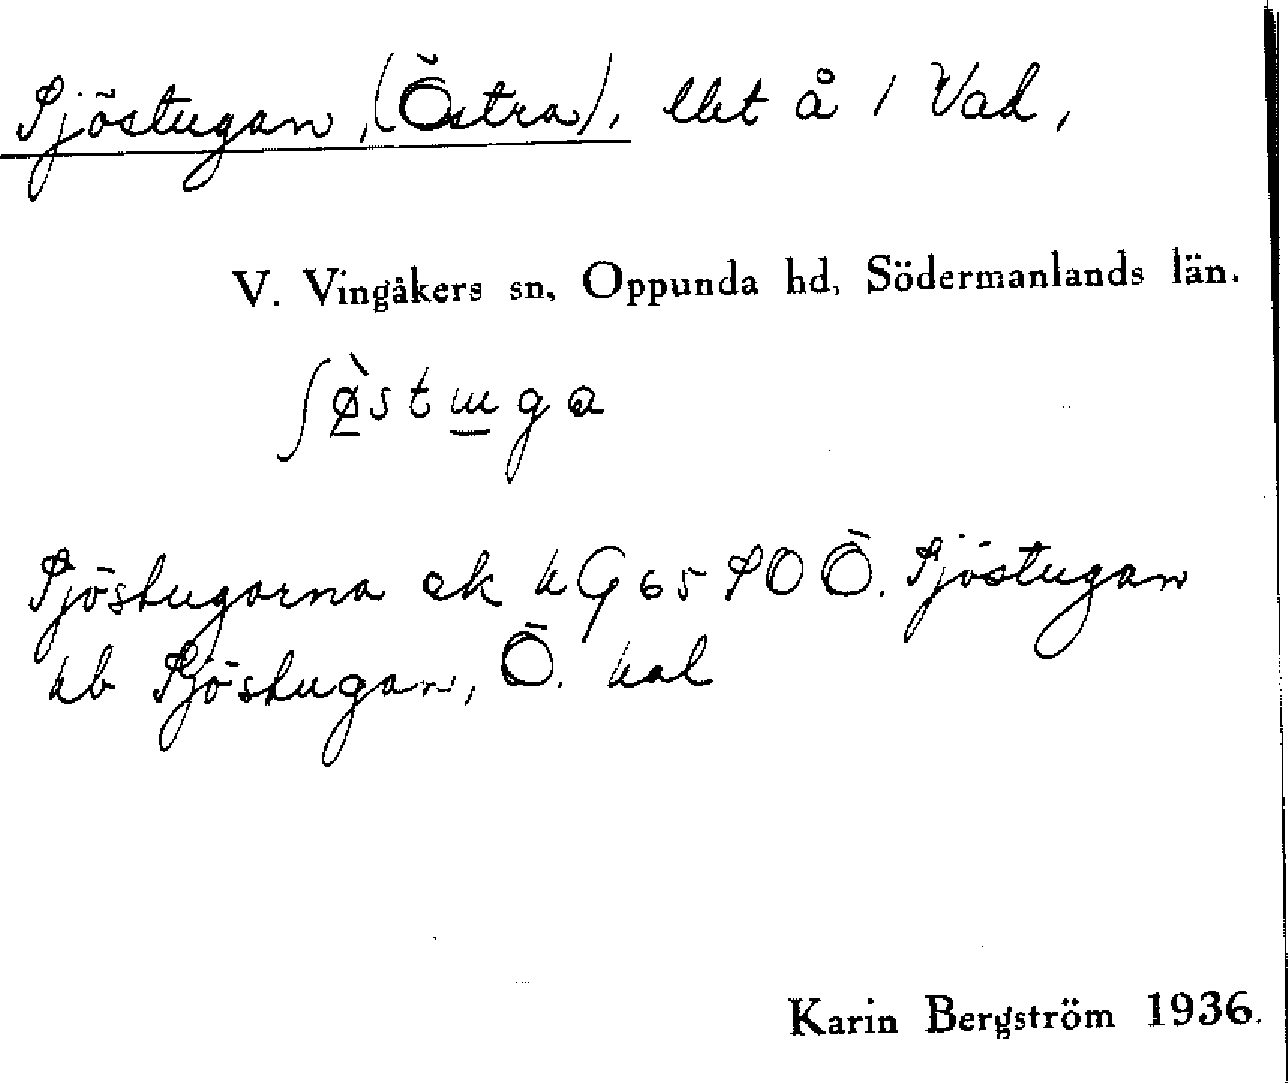 Sjöstugan, (Östra), lht å 1 Vad,
V. Vingåkers sn, Oppunda hd, Södermanlands län.
ʃø̀stɯga
Sjöstugorna ek kG 65 SO Ö. Sjöstugan
kb Sjöstugan, Ö. kal
Karin Bergström 1936.